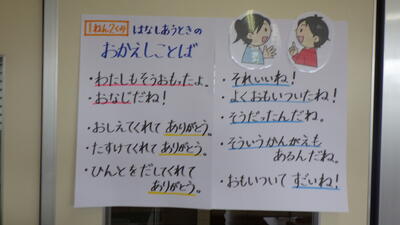 1ねん2くみ
はなしあうときの
おかえしことば
・わたしもそうおもったよ。
・おなじだね！
・おしえてくれて ありがとう。
・たすけてくれて ありがとう。
・ひんとをだしてくれて
ありがとう。
・それいいね！
・よくおもいついたね！
・そうだったんだね。
・そういうかんがえも
あるんだね。
・おもいついて すごいね！